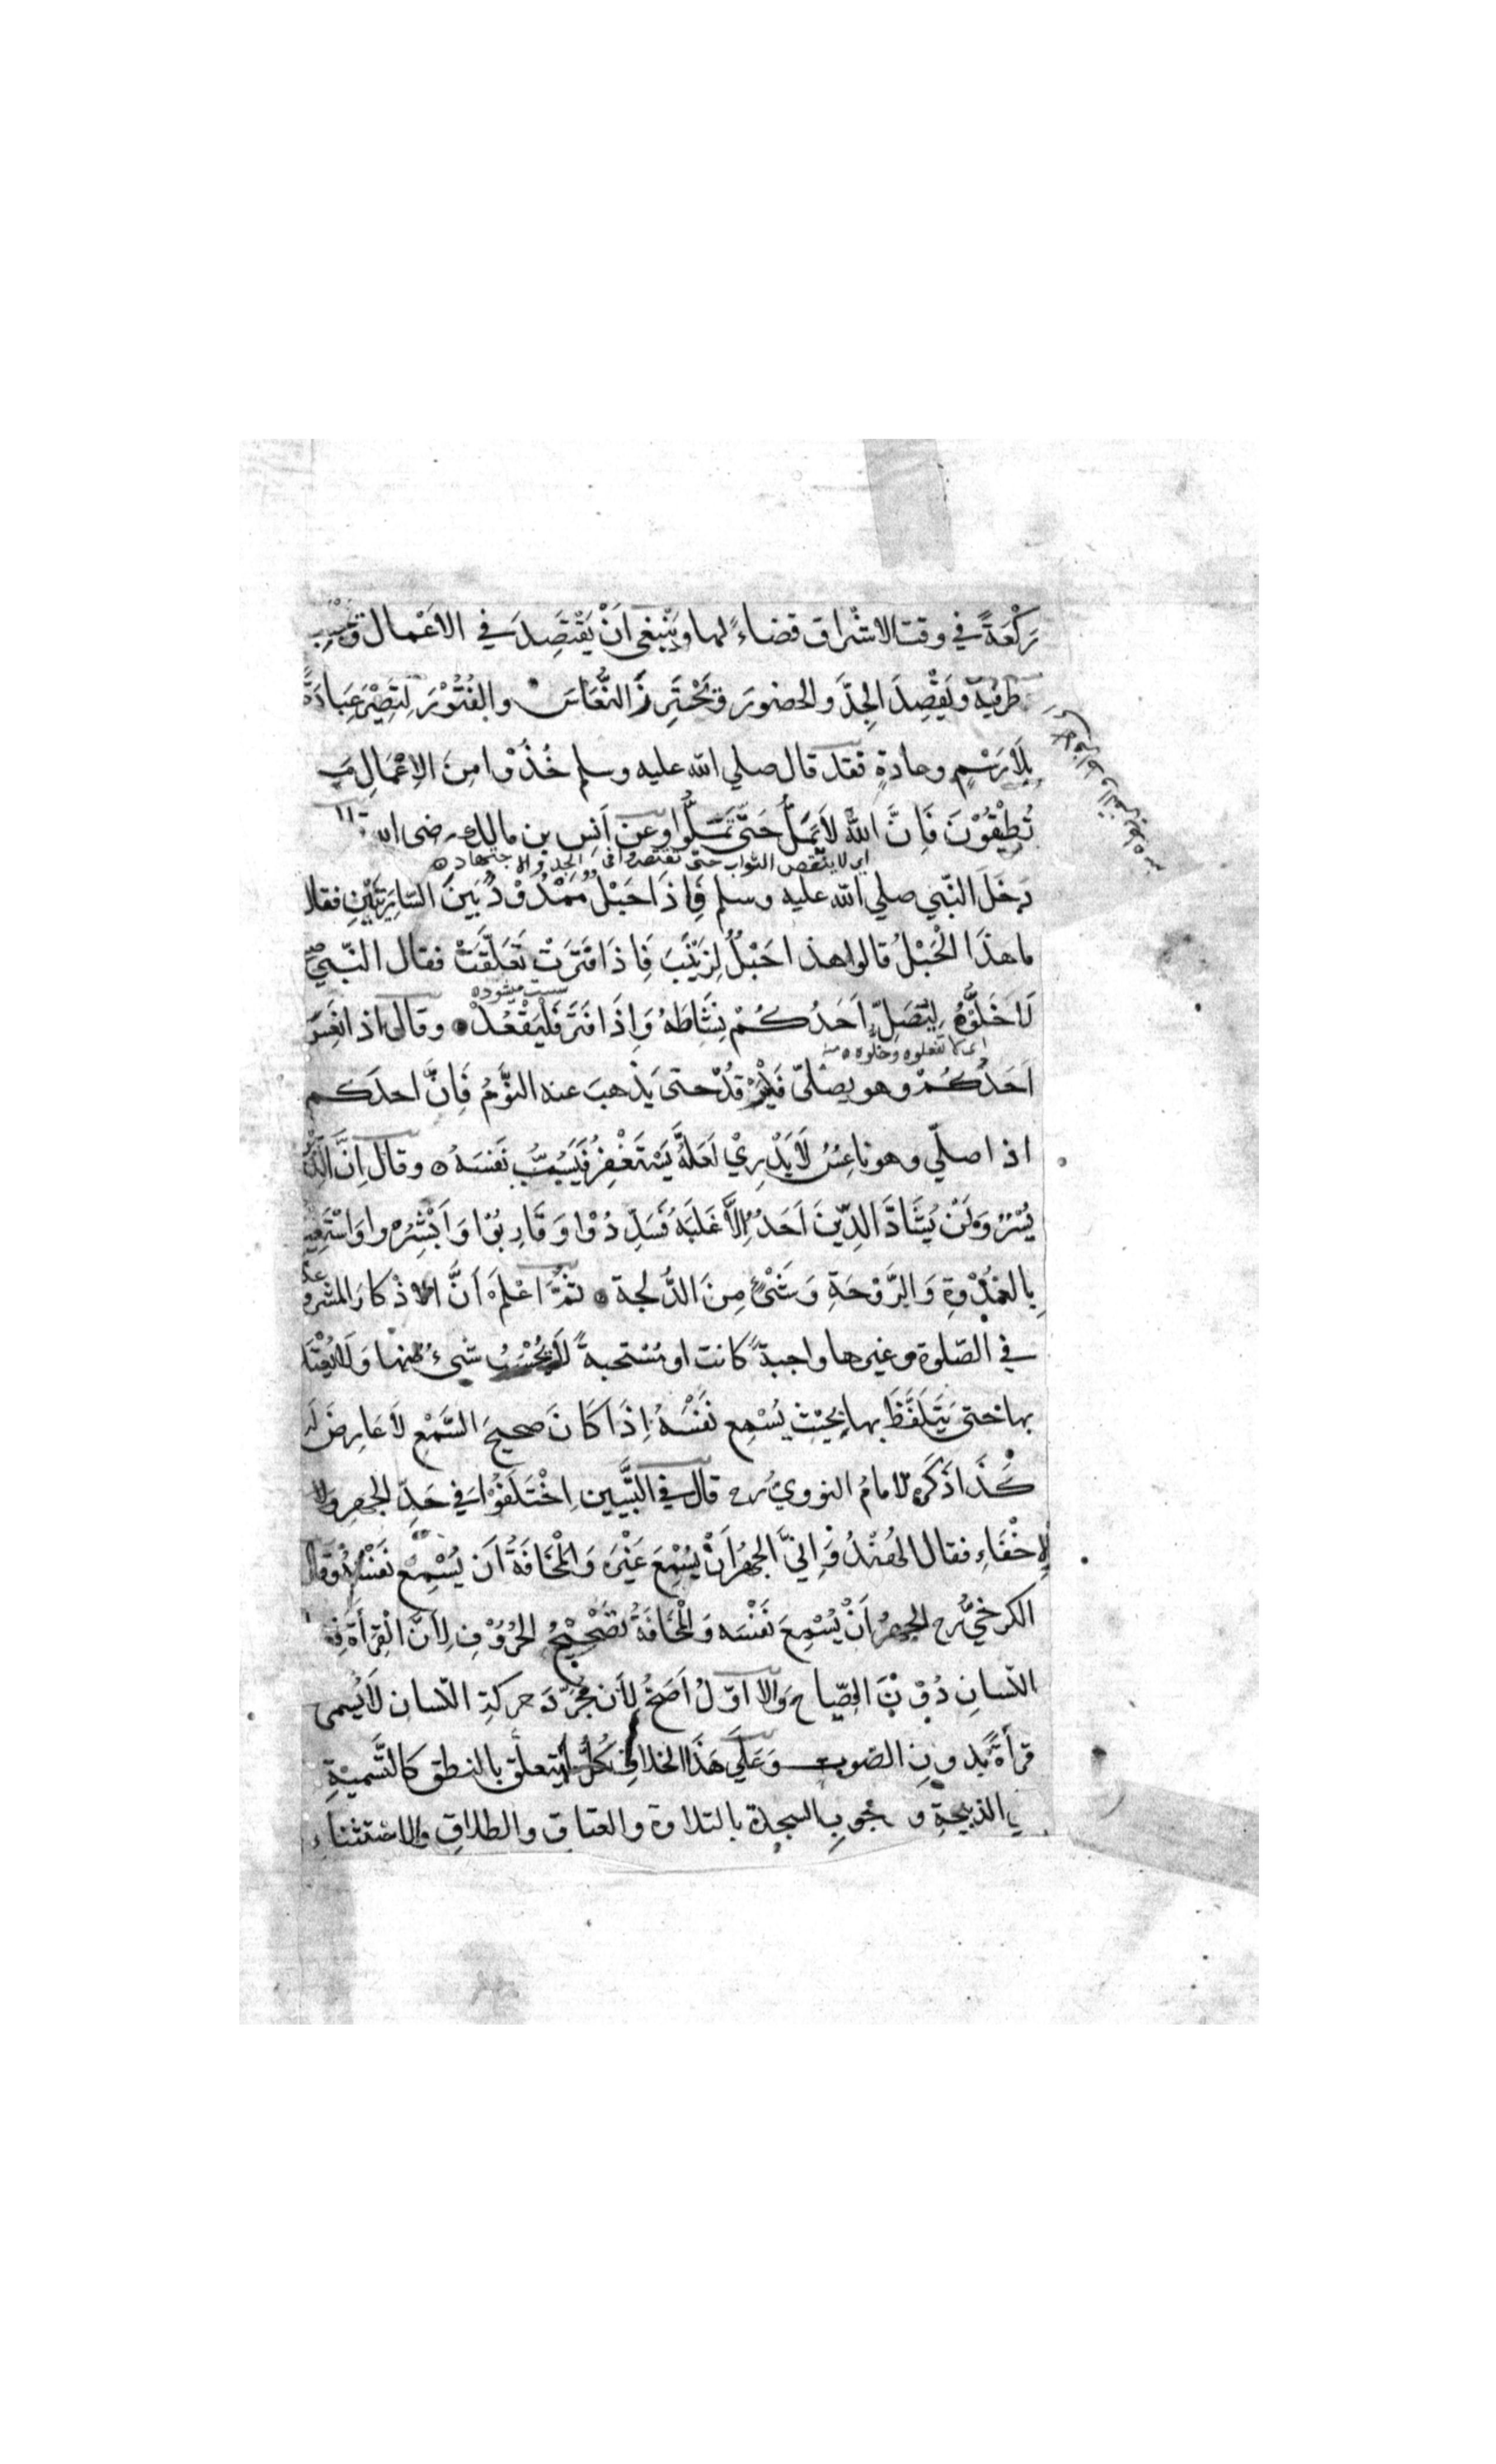 رَكْعَةً في وقت الاشراق قضاءً لها وينبغي اَنْ يَقْتَصِدَ في الاَعْمال
طرفيه ويَقْصِدَ الجِدَّ والحضورَ وَيَحْتَرِزَ النُّعَاسَ والفُتُوْرَ لِتَصِيْرَ عِبَادَة
بِلاَ رَسْمٍ وعادةٍ فقد قال صلي الله عليه وسلم خُذُوْا مِنَ الاِعْمَالِ مَـ
تُطِيْقُوْنَ فَاِنَّ اللّٰهَ لاَ يَمَلُّ حَتّي تَمَلُّوا وعن اَنَسِ بن مالك رضى الله
اى لا ينقص الثواب حتى تقتصروا فى الجد والاجتهاد
دَخَلَ النّبي صلي الله عليه وسلم فَاِذَا حَبْلٌ مَمْدُوْدٌ بَيْنَ السّارِيَتَيْنِ فقال
ما هذَا الْحَبْلُ قالوا هذا حَبْلٌ لِزَيْنَبَ فَاِذَا فَتَرَتْ تَعَلَّقَتْ فقال النّبيّ
لاَ حَلُّوْهُ لِيُصَلِّ اَحَدُكُمْ نِشَاطَهُ وَاِذَا فَتَرَ فَلْيَقْعُدْ وقال اذا نَعِسَ
اى لا تفعلوه وحلوه
اَحَدُكُمْ وهو يصلّى فَلْيَرْقُدْ حتى يَذْهبَ عنه النَّوْمُ فَاِنَّ احدَكم
اذا صلّي وهو ناعِسٌ لاَ يَدْرِيْ لَعَلَّهُ يَسْتَغْفِرُ فَيَسُبُّ نَفسَهُ وقال اِنَّ الدّ
يُسْرٌ وَلَنْ يُشَادَّ الدِّيْنَ اَحَدٌ اِلاَّ غَلَبَهُ فَسَدِّدُوْا وَقَارِبُوْا وَاَبْشِرُوا وَاسْتَعِيْـ
بِالغُدْوَةِ وَالرَّوْحَةِ وَشَيْءٍ مِنَ الدُّلجة ثُمَّ اعْلَمْ اَنَّ الاذكارَ المشروعة
في الصّلوة وغيرها واجبةً كانت او مُسْتحبةً لاَ يُحْسَبُ شيءٌ مِنْها وَلاَ يُعْتَـ
بها حتى يَتَلَفَّظَ بها بحَيْثِ يُسْمِع نَفْسَهُ اِذَا كَانَ صحيحَ السَّمْعِ لاَ عَارِضَ لَهُ
كَذَا ذَكَرَه الامامُ النوويّ رح قال في التَّبيين اِخْتَلَفُوْا في حَدِّ الجهرِ وَ
الاِخْفَاءِ فقال الهُنْدُوَانِيّ الجهرُ اَنْ يُسْمِعَ غَيْرَه وَالْمُخَافَةُ اَن يُسْمِعَ نَفْسَهُ وَقَالَ
الكرخيّ رح الجهرُ اَنْ يُسْمِعَ نَفْسَه وَالْمُخَافَةُ تَصْحِيْحُ الحُرُوْفِ لِاَنَّ الْقِرَأَةَ فِعْـ
اللّسانِ دُوْنَ الصِّماخِ وَالاوّلُ اَصَحُّ لِأن مُجَرَّدَ حركةِ اللّسانِ لاَ يُسمى
قرأةً بدونِ الصّوت وَعَلَي هَذَا الخلافِ كُلُّ ما يتعلّق بالنطق كالتَّسميةِ
في الذبيحةِ ووجوبِ السجدة بالتلاوة والعتاق والطلاقِ والاستثناءِ